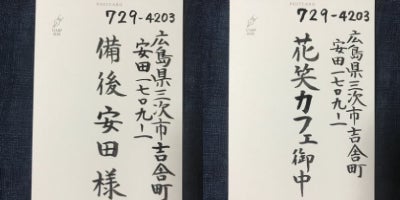 729-4203
広島県三次市吉舎町
安田一七〇九ー一
備後安田様
729-4203
広島県三次市吉舎町
安田一七〇九ー一
花笑カフェ御中